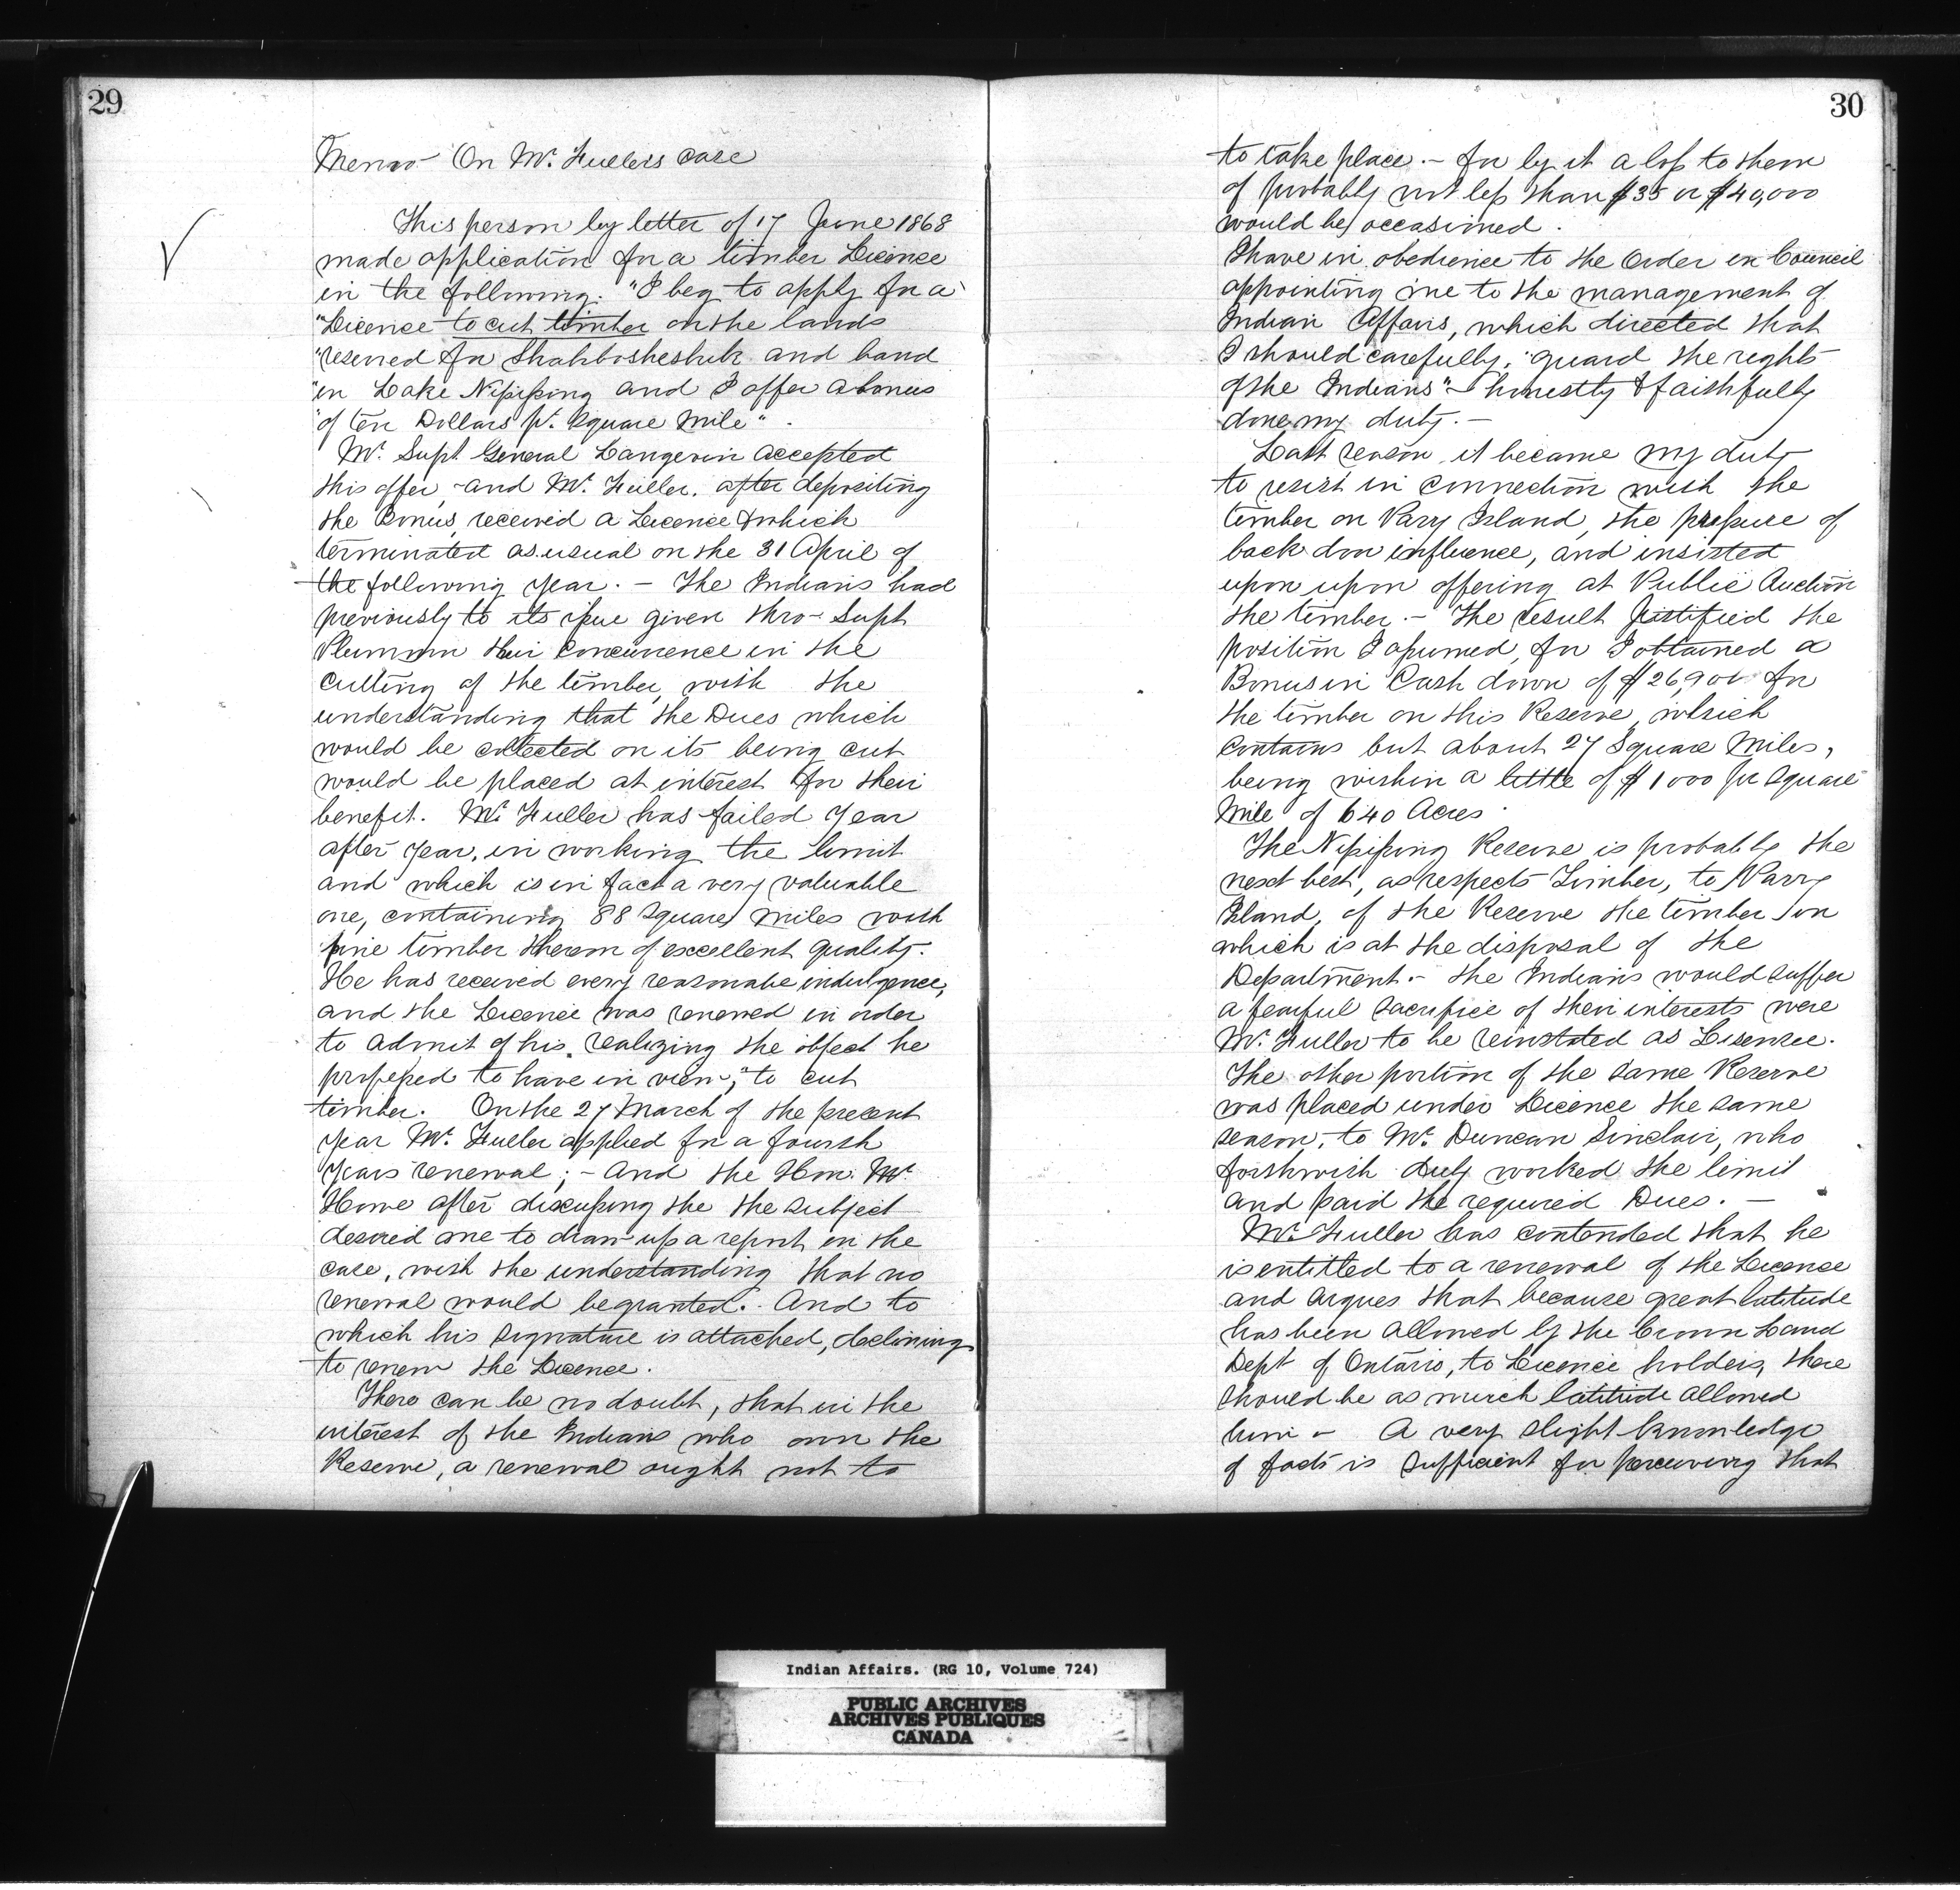 29
Memo - On Mr. Fullers case
This person by letter of 17 June 1868
made application for a timber Licence
in the following. "I beg to apply for a
"Licence to cut timber on the lands
"reserved for Shahbosheshuk and band
"in Lake Nipissing and I offer a bonus
"of ten Dollars pr. Square Mile".
Mr. Supt General Langevin accepted
this offer, and Mr. Fuller, after depositing
the Bonus, received a Licence & which
terminated as usual on the 31 April of
the following year. - The Indians had
previously to its issue given thro- Supt
Plummer their concurrence in the
cutting of the timber, with the
understanding that the Dues which
would be collected on its being cut
would be placed at interest for their
benefit. Mr. Fuller has failed year
after year, in working the limit
and which is in fact a very valuable
one, containing 88 Square Miles with
pine timber thereon of excellent quality.
He has received every reasonabe indulgence,
and the Licence was renewed in order
to admit of his realizing the object he
professed to have in view, "to cut
timber. On the 27 March of the present
year Mr. Fuller applied for a fourth
years renewal; - And the Hon. Mr.
Howe after discussing the the subject
desired me to draw up a report on the
case, with the understanding that no
renewal would be granted. And to
which his signature is attached, declining
to renew the Licence.
There can be no doubt, that in the
interest of the Indians who own the
Reserve, a renewal ought not to
30
to take place. - For by it a loss to them
of probably not less than $35 or $40,000
would be occasioned.
I have in obedience to the Order in Council
appointing me to the management of
Indian Affairs, which directed that
I should carefully, "guard the rights
of the Indians" - honestly & faithfully
done my duty. -
Last season, it became my duty
to resist in connection with the
timber on Parry Island, the pressure of
back door influence, and insisted
upon upon offering at Public Auction
the timber. - The result justified the
position I assumed, for I obtained a
Bonus in Cash down of $26,900 for
the timber on this Reserve, which
contains but about 27 Square Miles,
being within a little of $1000 pr Square
Mile of 640 Acres.
The Nipissing Reserve is probably the
next best, as respects Timber, to Parry
Island, of the Reserve the timber on
which is at the disposal of the
Department. - The Indians would suffer
a fearful sacrifice of their interests were
Mr. Fuller to be reinstated as Lisensee.
The other portion of the same Reserve
was placed under Licence the same
season, to Mr. Duncan Sinclair, who
forthwith duly worked the limit
and paid the required Dues. -
Mr. Fuller has contended that he
is entitled to a renewal of the Licence
and argues that because great latitude
has been allowed by the Crown Land
Dept of Ontario, to Licence holders, there
should be as much latitude allowed
him - A very slight knowledge
of facts is sufficient for perceiving that
Indian Affairs. (RG 10, Volume 724)
PUBLIC ARCHIVES
ARCHIVES PUBLIQUES
CANADA